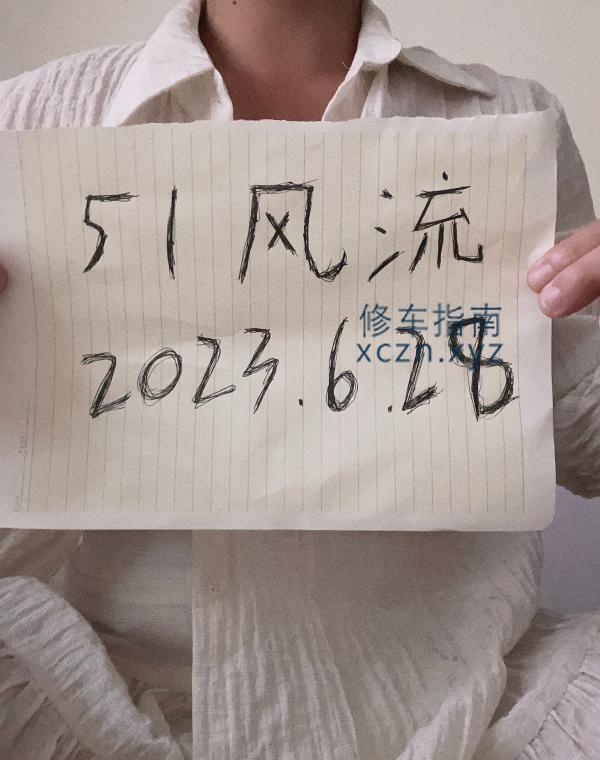 51风流
2023.6.28
修车指南
xczn.xyz